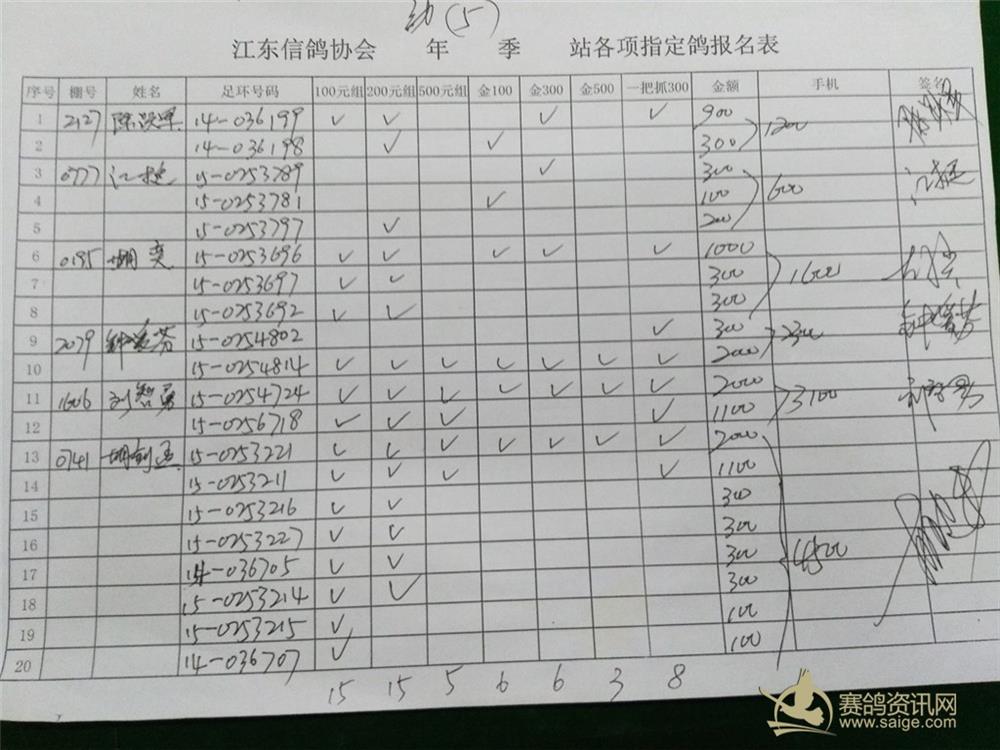 幼(5)
江东信鸽协会 年 季 站各项指定鸽报名表
序号 棚号 姓名 足环号码 100元组 200元组 500元组 金100 金300 金500 一把抓300 金额 手机 签名
1 2127 14-036199 ✓ ✓ ✓ ✓ 900 1200
2 14-036198 ✓ ✓ 300
3 0777 江挺 15-0253789 ✓ 300 600 江挺
4 15-0253781 ✓ 100
5 15-0253797 ✓ 200
6 0195 15-0253696 ✓ ✓ ✓ ✓ ✓ 1000 1600
7 15-0253697 ✓ ✓ 300
8 15-0253692 ✓ ✓ 300
9 2079 15-0254802 ✓ 300 2300
10 15-0254814 ✓ ✓ ✓ ✓ ✓ ✓ ✓ 2000
11 1606 刘智勇 15-0254724 ✓ ✓ ✓ ✓ ✓ ✓ ✓ 2000 3100
12 15-0256718 ✓ ✓ ✓ ✓ 1100
13 0741 15-0253221 ✓ ✓ ✓ ✓ ✓ ✓ ✓ 2000 4500
14 15-0253211 ✓ ✓ ✓ ✓ 1100
15 15-0253216 ✓ ✓ 300
16 15-0253227 ✓ ✓ 300
17 14-036705 ✓ ✓ 300
18 15-0253214 ✓ ✓ 300
19 15-0253215 ✓ 100
20 14-036707 ✓ 100
15 15 5 6 6 3 8
赛鸽资讯网
www.saige.com